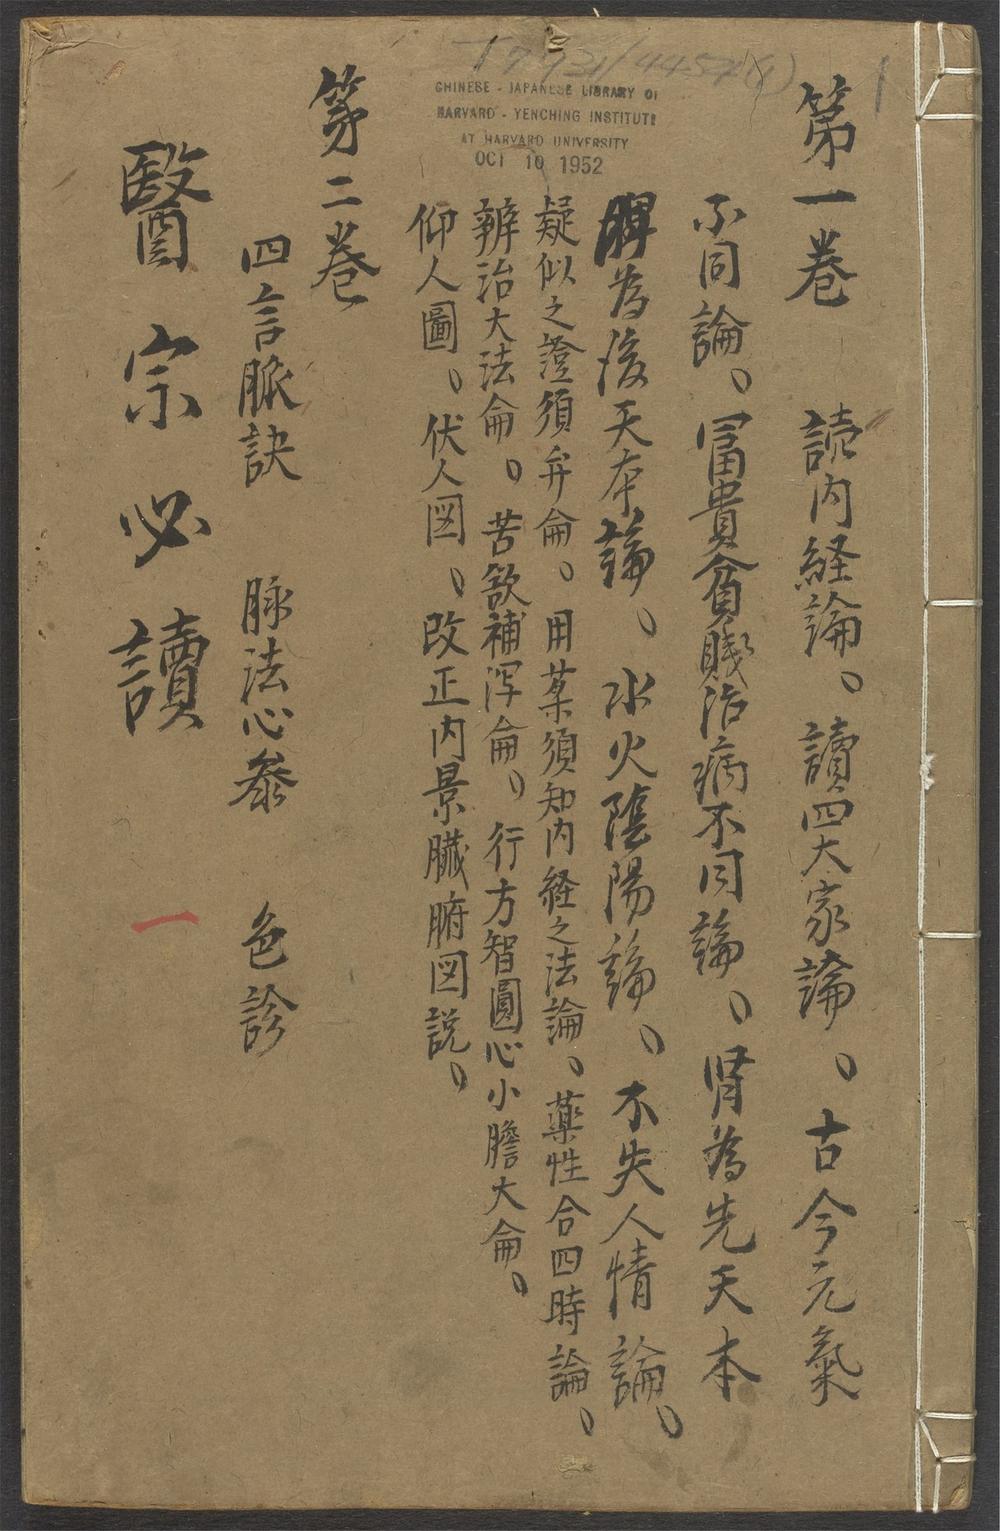 T 7931/4454 (1)
1
CHINESE - JAPANESE LIBRARY OF
HARVARD - YENCHING INSTITUTE
AT HARVARD UNIVERSITY
OCT 10 1952
第一巻　読内経論。讀四大家論。古今元氣
不同論。冨貴貧賤治病不同論。腎為先天本
脾為後天本論。水火陰陽論。不失人情論。
疑似之證須弁侖。用薬須知内経之法論。薬性合四時論。
辨治大法侖。苦欲補泻侖。行方智圓心小膽大侖。
仰人圖。伏人図。改正内景臓腑図説。
第二巻
四言脈訣　脉法心参　色診
醫宗必讀　一